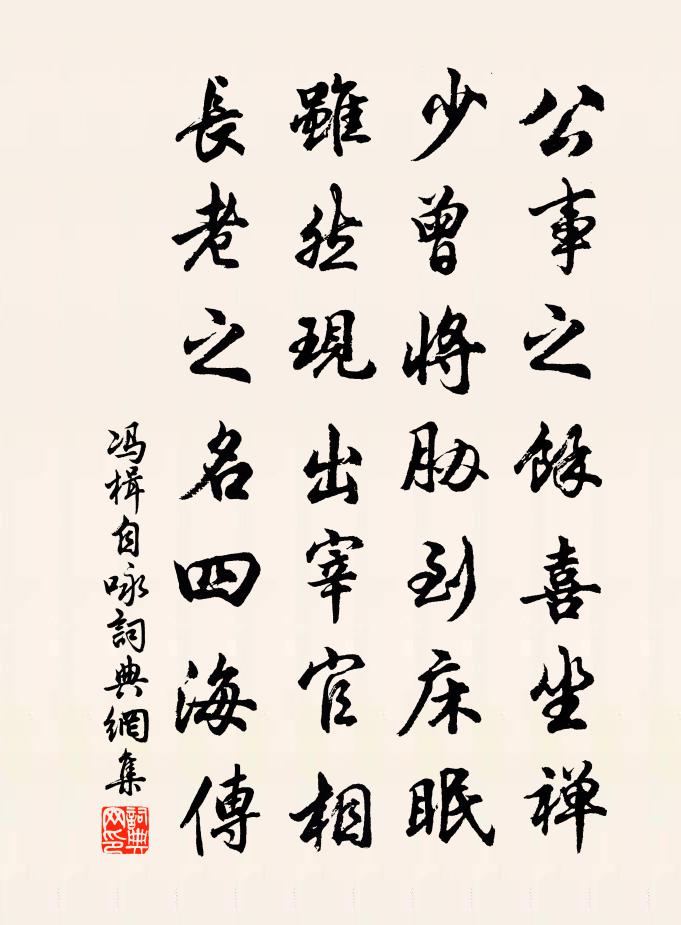 公事之餘喜坐禅
少曾將胁到床眠
雖然現出宰官相
長老之名四海傳
冯楫自咏詞典網集
詞典網印